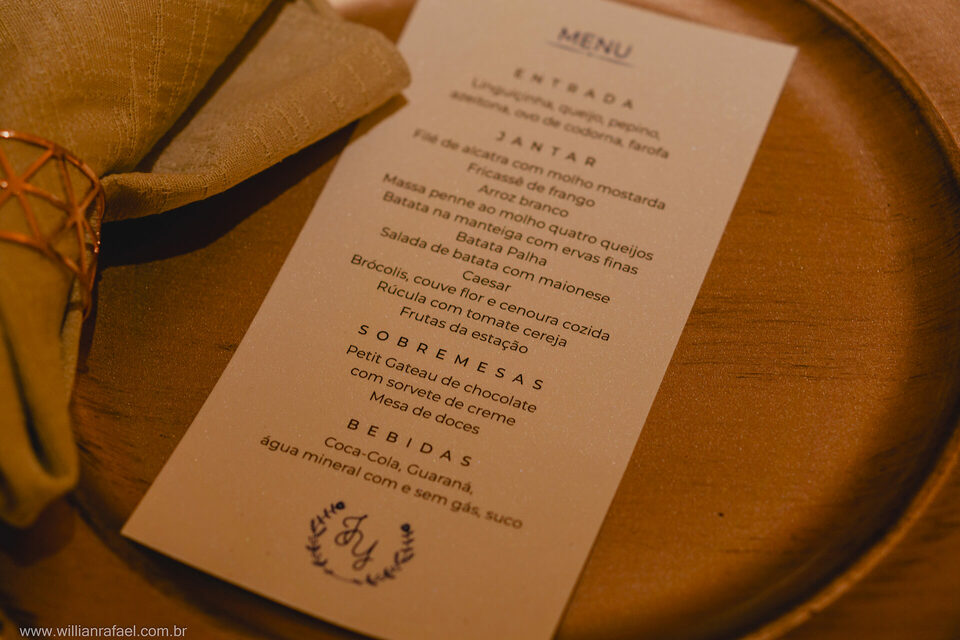 MENU
ENTRADA
Linguiçinha, queijo, pepino,
azeitona, ovo de codorna, farofa
JANTAR
Filé de alcatra com molho mostarda
Fricassê de frango
Arroz branco
Massa penne ao molho quatro queijos
Batata na manteiga com ervas finas
Batata Palha
Salada de batata com maionese
Caesar
Brócolis, couve flor e cenoura cozida
Rúcula com tomate cereja
Frutas da estação
SOBREMESAS
Petit Gateau de chocolate
com sorvete de creme
Mesa de doces
BEBIDAS
Coca-Cola, Guaraná,
água mineral com e sem gás, suco
JY
www.willianrafael.com.br